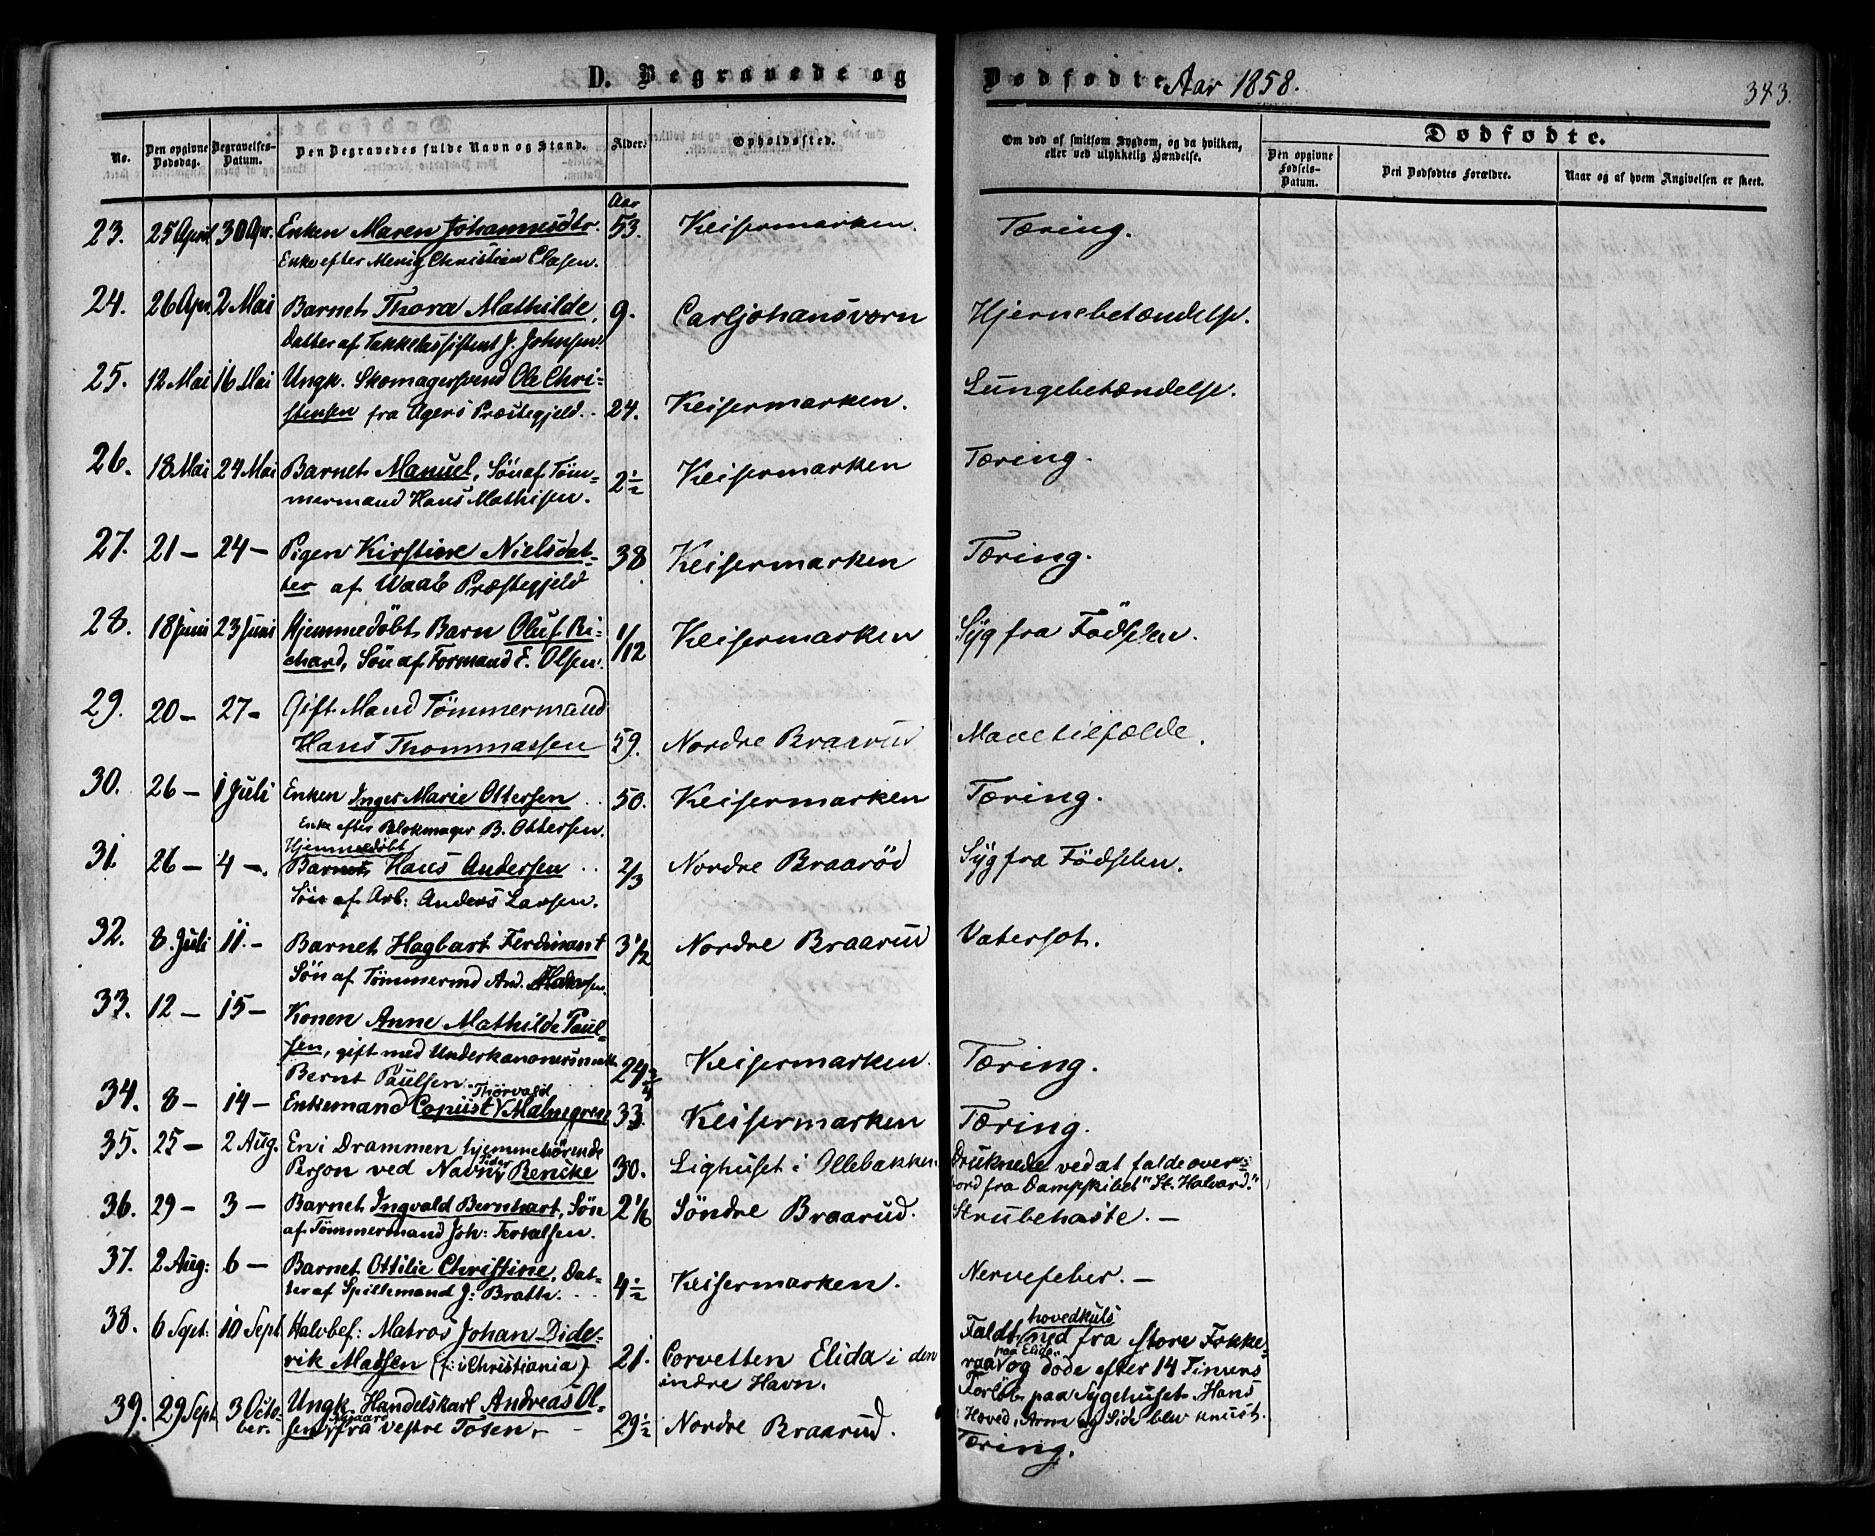 D. Begravede og Dødfødte. Aar 1858. 343.
No. | Den opgivne Dødsdag. | Begravelses-Datum. | Den Begravedes fulde Navn og Stand. | Alder. | Opholdssted. | Om død af smitsom Sygdom, og da hvilken, eller ved ulykkelig Hændelse. | Dødfødte.
Den opgivne Fødsels-Datum. | Den Dødfødtes Forældre. | Naar og af hvem Angivelsen er skeet.
Aar
23. 25 April 30 Apr. Enken Maren Johannesdtr. 53. Keisermarken. Tæring.
Enke efter Menig Christian Olasen.
24. 26 Apr. 2 Mai Barnet Thora Mathilde, 9. Carljohansvorn Hjernebetændelse.
Datter af Takkelassistent J. Johnsen.
25. 12 Mai 16 Mai Ungk. Skomagersvend Ole Chri-
stensen fra Agers Præstegjeld. 24. Keisermarken. Lungebetændelse.
26. 18 Mai 24 Mai Barnet Manuel, Søn af Töm-
mermand Hans Mathisen. 2½ Keisermarken Tæring.
27. 21 — 24 — Pigen Kirstine Nielsdat-
ter af Waale Præstegjeld 38 Keisermarken Tæring.
28. 18 Juni 23 Juni Hjemmedöbt Barn Oluf Ri-
chard, Sön af Formand E. Olsen. 1/12 Keisermarken Syg fra Födselen.
29. 20 — 27 — Gift Mand Tömmermand
Hans Thommassen 59. Nordre Braarud Mavetilfælde.
30. 26 — 1 Juli Enken Inger Marie Ottersen 50. Keisermarken Tæring.
Enke efter Blokmager B. Ottersen.
Hjemmedöbt
31. 26 — 4 —. Barnet Hans Andersen 2/3 Nordre Braaröd Syg fra Födselen.
Sön af Arb: Anders Larsen.
32. 8. Juli 11. — Barnet Hagbart Ferdinant 3½ Nordre Braarud Vatersot.
Sön af Tömmermd And.
33. 12 — 15 — Konen Anne Mathilde Paul-
sen, gift med Underkanoner
Bernt Paulsen. 24 Keisermarken. Tæring.
Thorvald
34. 8 — 14 — Enkemand Copiist Malmgren 33. Keisermarken Tæring.
35. 25 — 2 Aug. En i Drammen hjemmehörende
Person ved Navn Bencke 30. Lighuset i Ollebakken. Druknede ved at falde over-
bord fra Dampskibet "St. Halvard."
36. 29 — 3 — Barnet Ingvald Bernhart, Sön 2 1/6 Söndre Braarud. Strubehoste. —
af Tömmermand Joh:
37. 2 Aug: 6 — Barnet Ottilie Christine, Dat-
ter af Spillemand J: Brath. 4½ Keisermarken. Nervefeber. —
38. 6 Sept: 10 Sept Halvbef: Matros Johan Dide-
rik Madsen (f: i Christiania) 21. Corvetten Elida i den
indre Havn.
hovedkuls
Faldt ned fra store Fokke-
paa Elida
raa og döde efter 14 Timers
Forlöb paa Sygehuset. Hans
Hoved, Arm og Side blev knust.
39. 29 Sept 3 Octo-
ber. Ungk. Handelskarl Andreas Ol-
sen fra vestre Tosen. 29½ Nordre Braarud. Tæring.